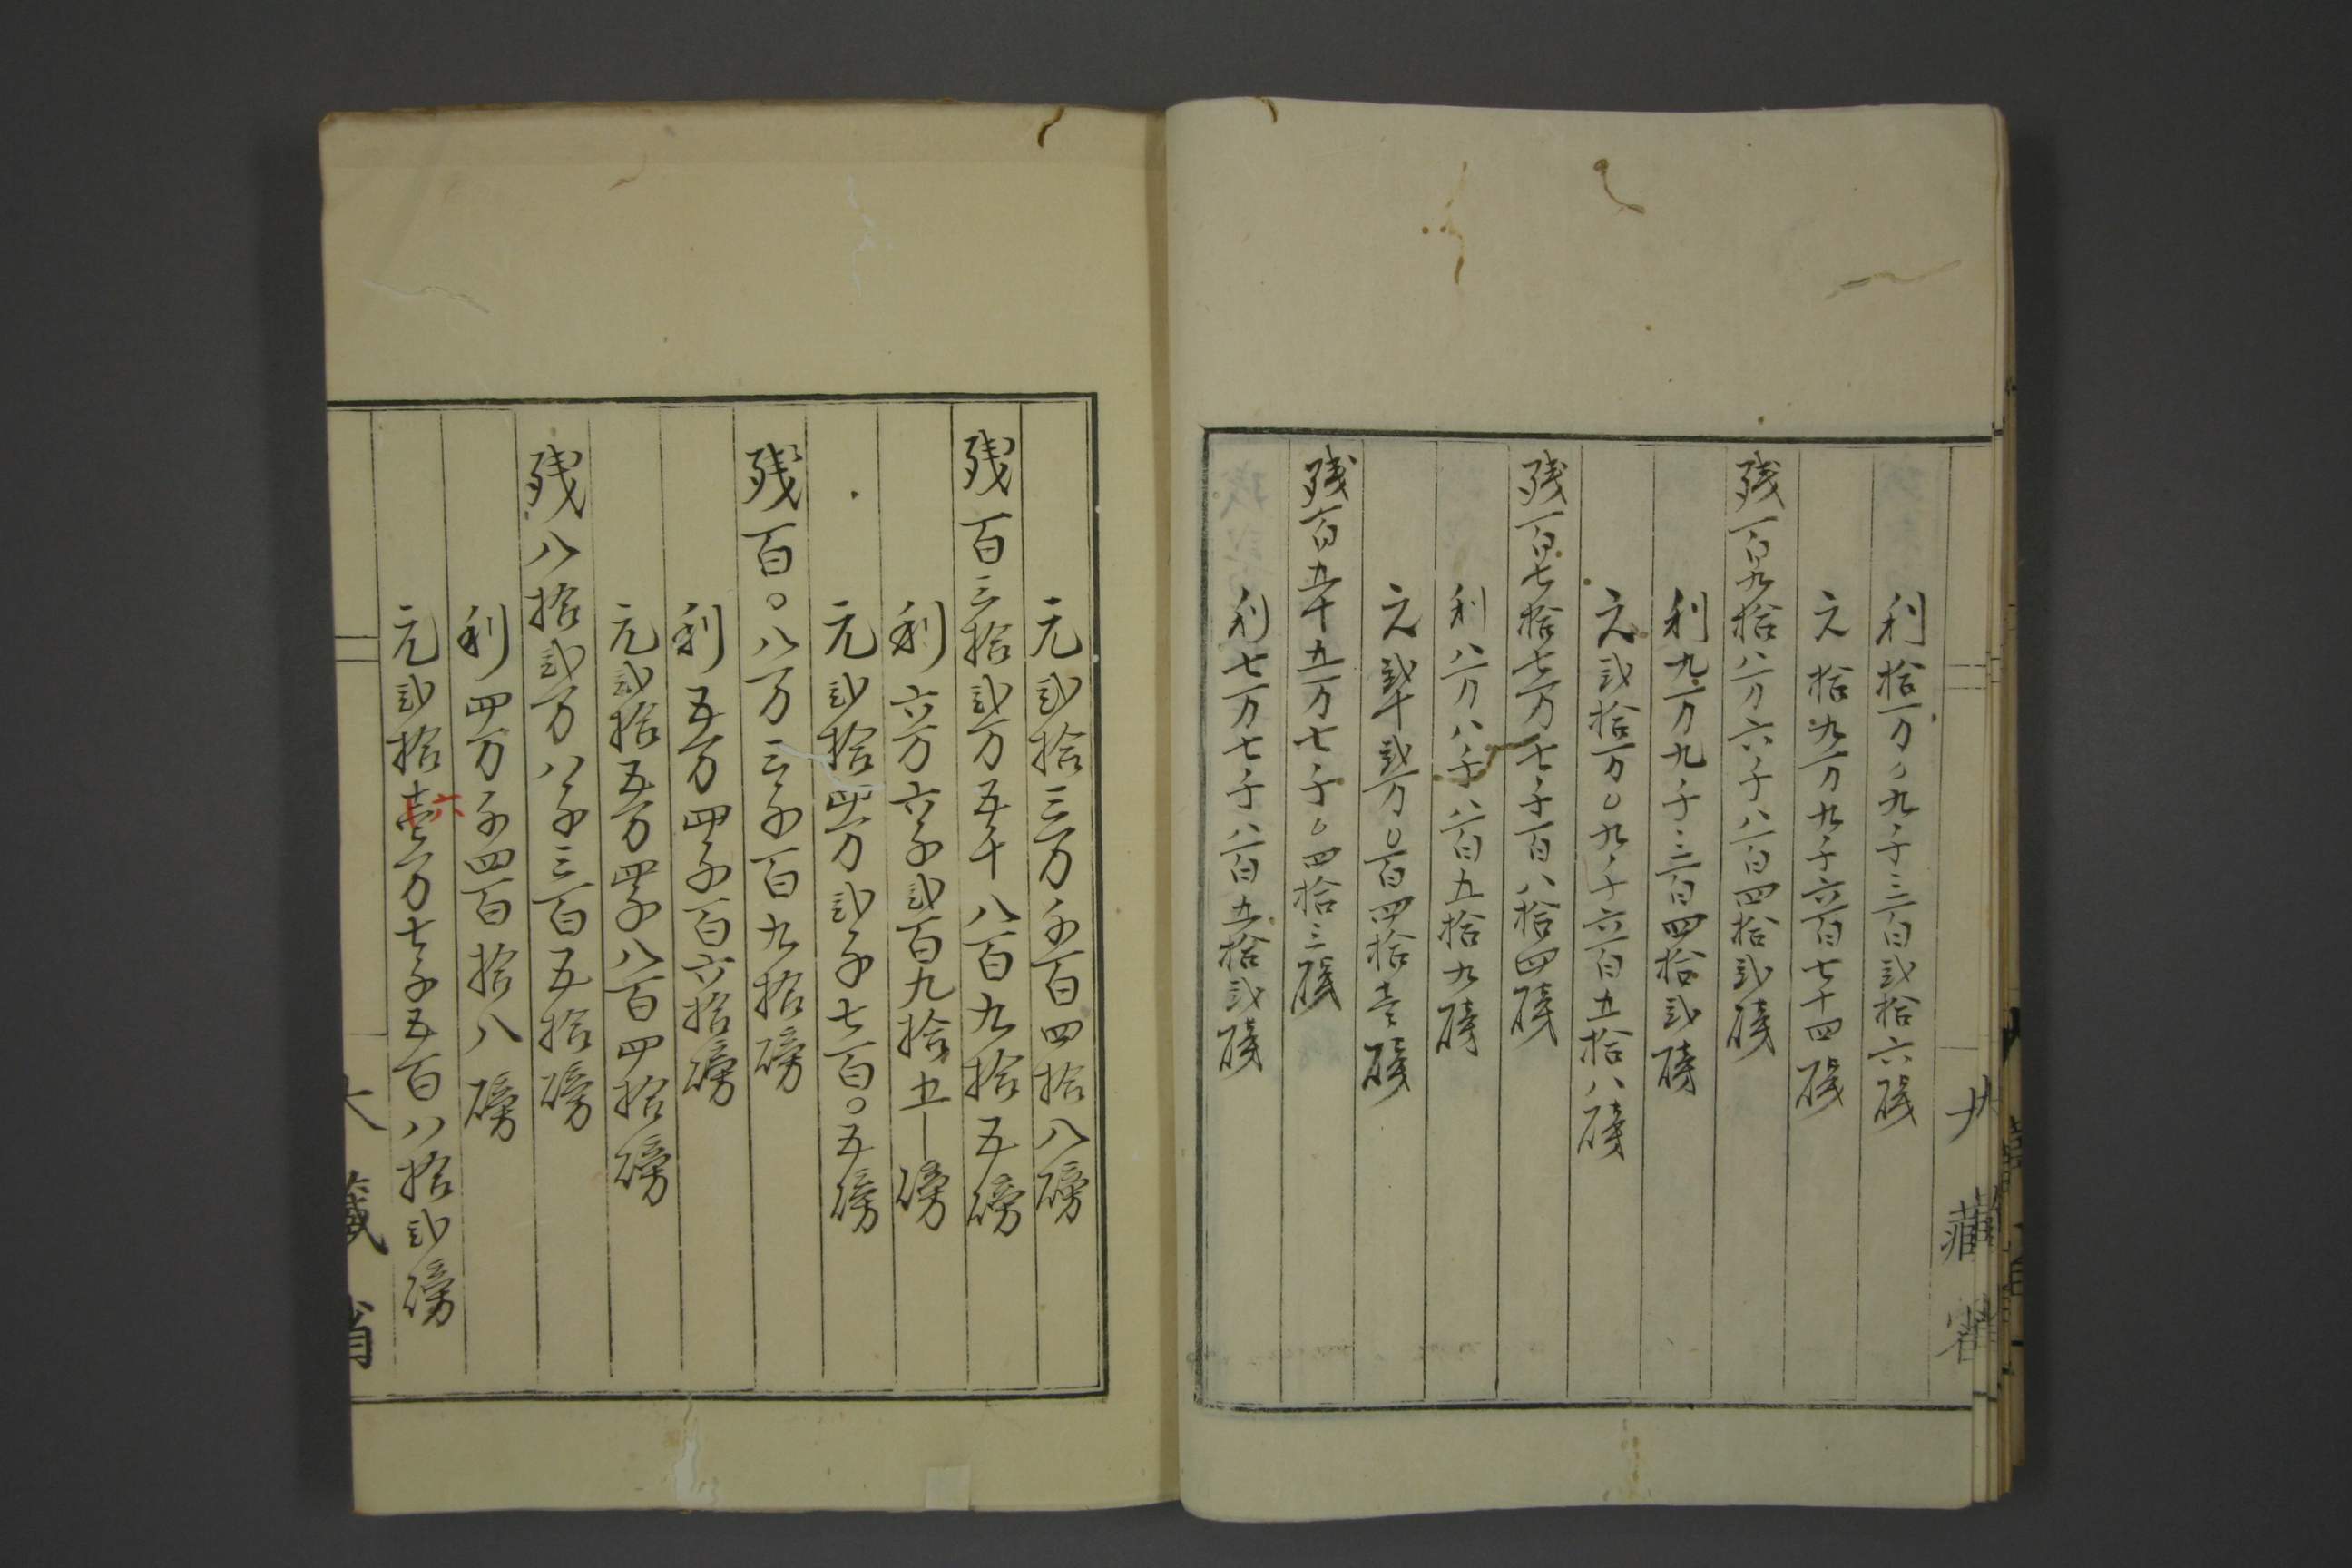 利拾万〇九千三百弐拾六磅
元拾九万九千六百七十四磅
残百九拾八万六千八百四拾弐磅
利九万九千三百四拾弐磅
元弐拾万〇九千六百五拾八磅
残百七拾七万七千百八拾四磅
利八万八千八百五拾九磅
元弐十弐万〇百四拾壱磅
残百五十五万七千〇四拾三磅
利七万七千八百五拾弐磅
元弐拾三万千百四拾八磅
残百三拾弐万五千八百九拾五磅
利六万六千弐百九拾五磅
元弐拾四万弐千七百〇五磅
残百〇八万三千百九拾磅
利五万四千百六拾磅
元弐拾五万四千八百四拾磅
残八拾弐万八千三百五拾磅
利四万千四百拾八磅
元弐拾壱万七千五百八拾弐磅
六
大藏省